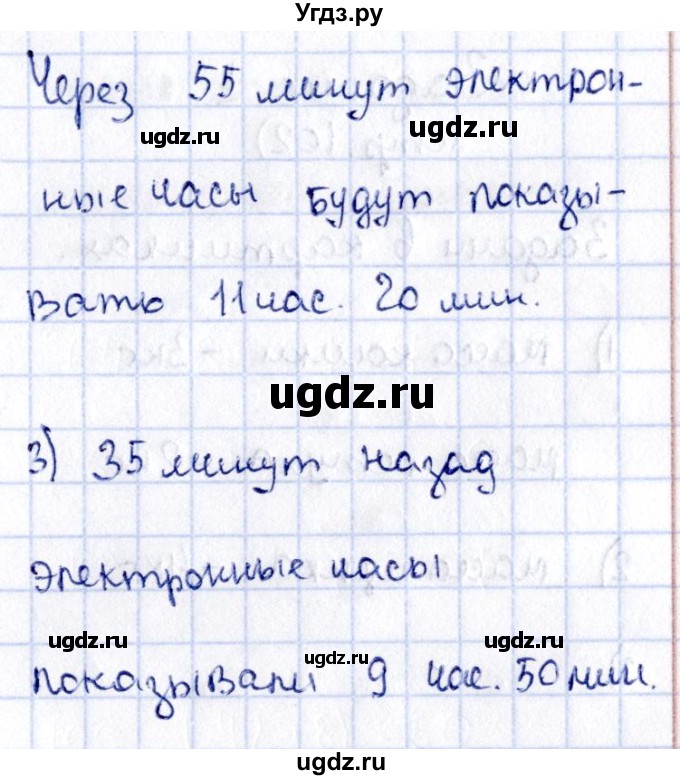 Угдз.ру
Через 55 минут электрон-
ugdz.ru ugdz.ru
ные часы будут показы-
вать 11 час. 20 мин.
ugdz.ru
3) 35 минут назад
электронные часы
ugdz.ru ugdz.ru ugdz.ru
показывали 9 час. 50 мин.
ugdz.ru